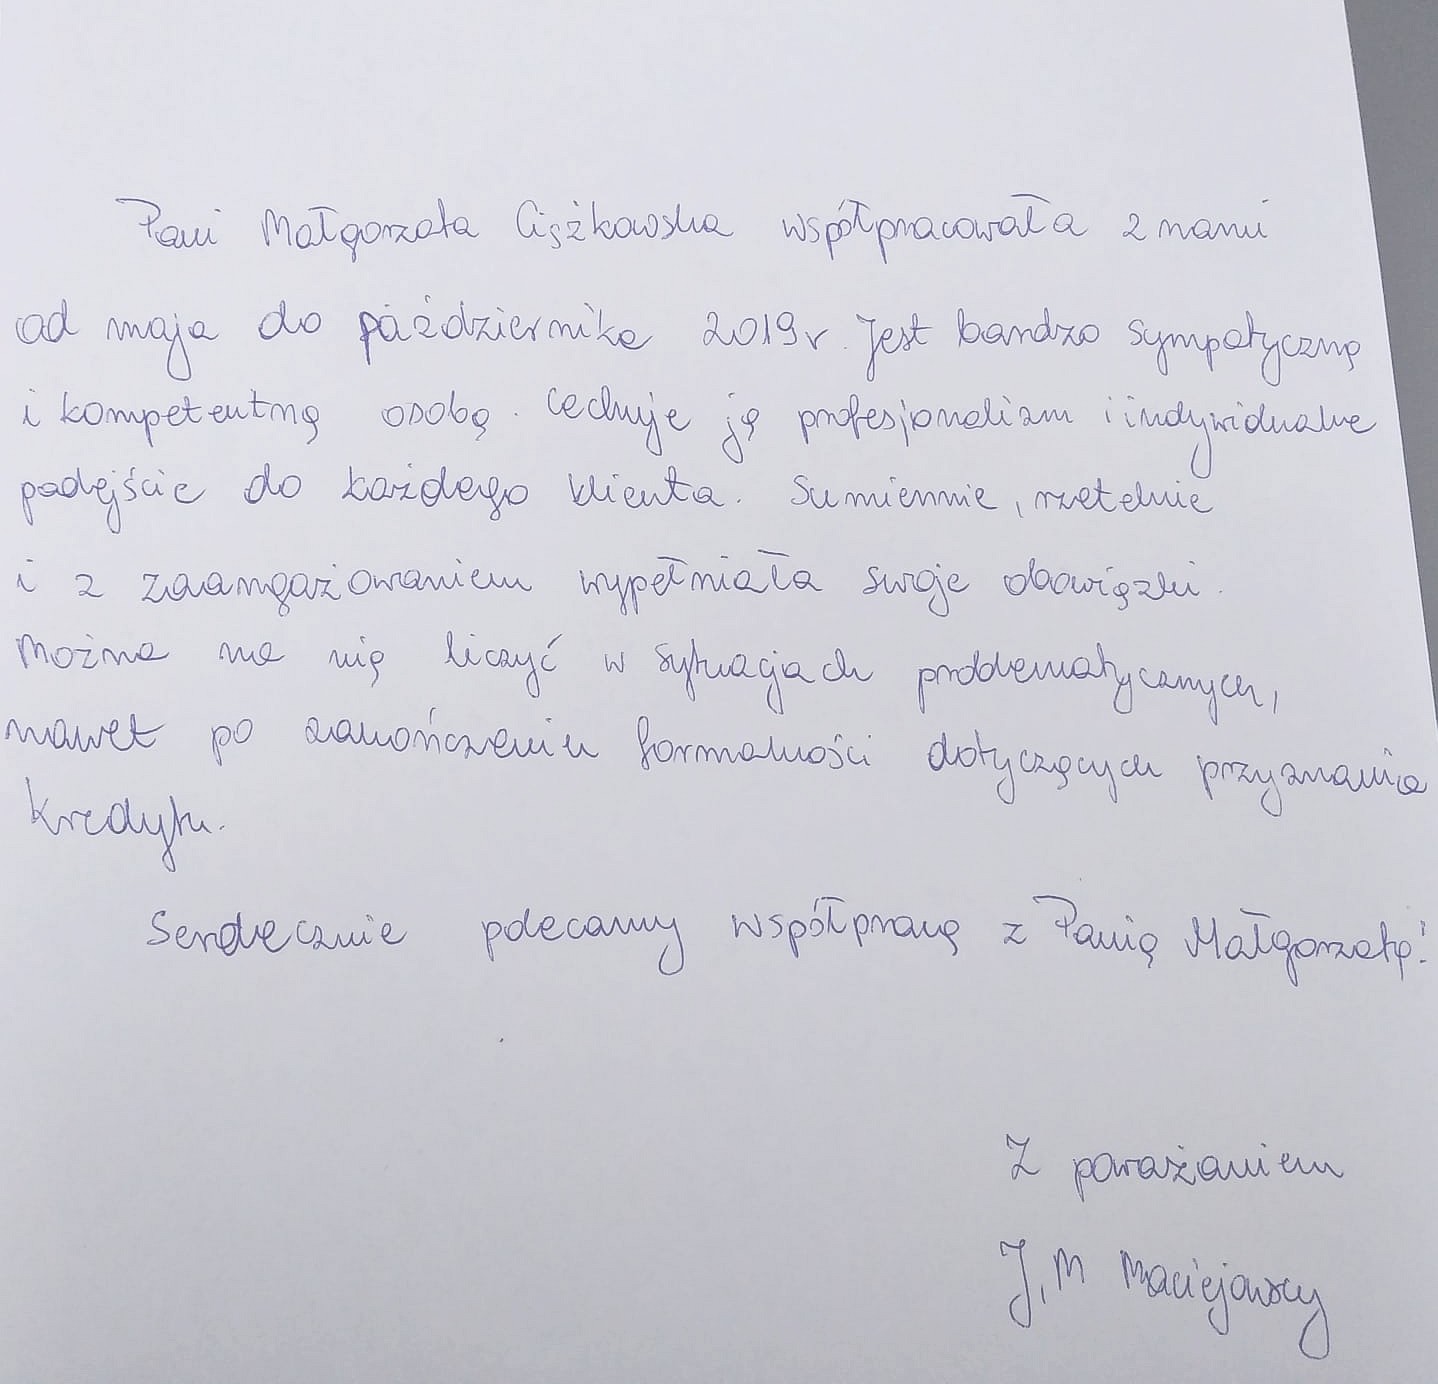 Pani Małgorzata Ciążkowska współpracowała z nami
od maja do października 2019 r. Jest bardzo sympatyczną
i kompetentną osobą. Cechuje ją profesjonalizm i indywidualne
podejście do każdego klienta. Sumiennie, rzetelnie
i z zaangażowaniem wypełniała swoje obowiązki.
Można na nią liczyć w sytuacjach problematycznych,
nawet po zakończeniu formalności dotyczących przyznania
kredytu.
Serdecznie polecamy współpracę z Panią Małgorzatą!
Z poważaniem
J, M Maciejowscy